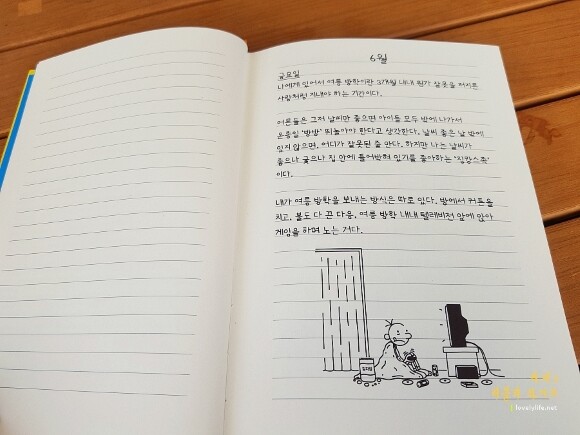 6월
금요일
나에게 있어서 여름 방학이란 3개월 내내 뭔가 잘못을 저지른
사람처럼 지내야 하는 기간이다.
어른들은 그저 날씨만 좋으면 아이들 모두 밖에 나가서
온종일 '방방' 뛰놀아야 한다고 생각한다. 날씨 좋은 날 밖에
있지 않으면, 어디가 잘못된 줄 안다. 하지만 나는 날씨가
좋으나 궂으나 집 안에 틀어박혀 있기를 좋아하는 '집캉스족'
이다.
내가 여름 방학을 보내는 방식은 따로 있다. 방에서 커튼을
치고, 불도 다 끈 다음, 여름 방학 내내 텔레비전 앞에 앉아
게임을 하며 노는 거다.
lovelylife.net